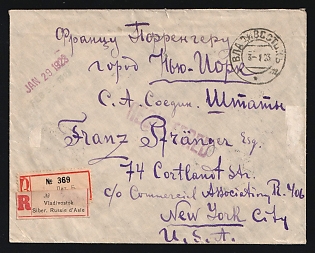 Францу Порренгеру
город Нью-Іорк
С. А. Соедин. Штаты
Franz Pfränger Esq.
74 Cortlandt Str.
c/o Commercial Association, R. 406
New York City
U.S.A.
JAN 29 1923
ВЛАДИВОСТОКЪ
3-1-23
R
№ 369
Vladivostok
Siber. Russie d'Asie